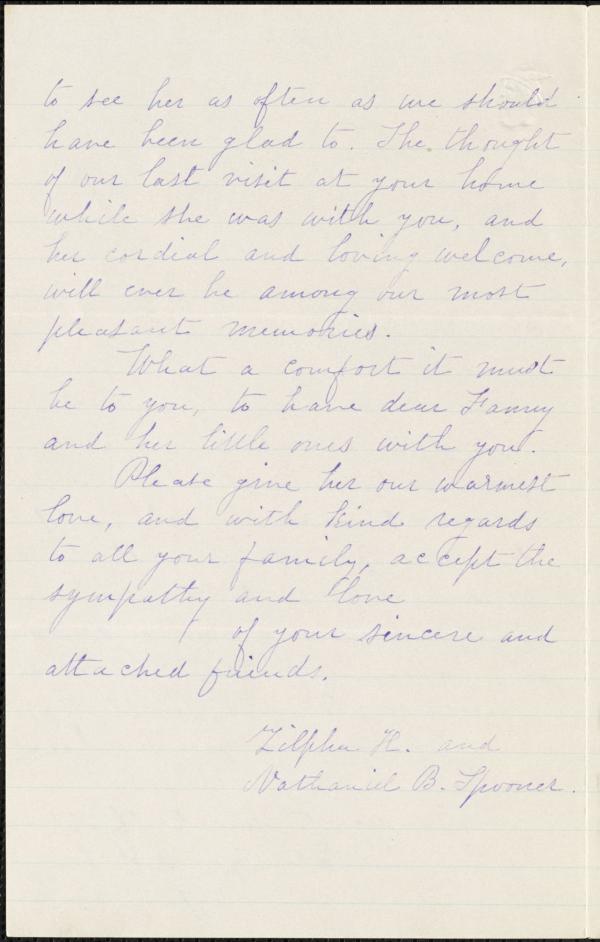 to see her as often as we should
have been glad to. The thought
of our last visit at your home
while she was with you, and
her cordial and loving welcome,
will ever be among our most
pleasant memories.
What a comfort it must
be to you, to have dear Fanny
and her little ones with you.
Please give her our warmest
love, and with kind regards
to all your family, accept the
sympathy and love
of your sincere and
attached friends.
Zilpha H. and
Nathaniel B. Spooner.